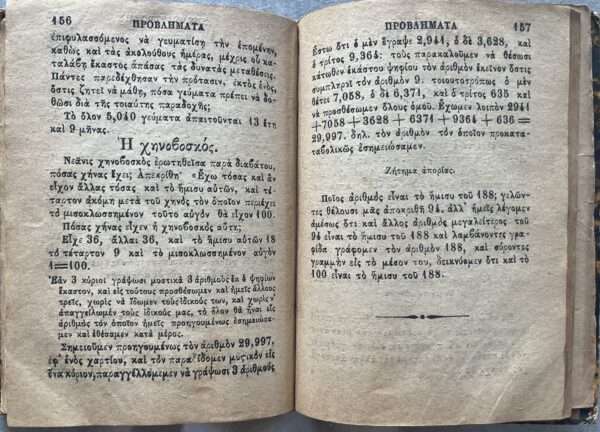 156
ΠΡΟΒΛΗΜΑΤΑ
ἐπιφυλασσόμενος νὰ γευματίσῃ τὴν ἑπομένην,
καθὼς καὶ τὰς ἀκολούθους ἡμέρας, μέχρις οὗ κα-
ταλάβῃ ἕκαστος ἁπάσας τὰς δυνατὰς μεταθέσεις.
Πάντες παρεδέχθησαν τὴν πρότασιν, ἐκτὸς ἑνός,
ὅστις ζητεῖ νὰ μάθῃ, πόσα γεύματα πρέπει νὰ δο-
θῶσι διὰ τῆς τοιαύτης παραδοχῆς;
Τὸ ὅλον 5,040 γεύματα ἀπαιτοῦνται 13 ἔτη
καὶ 9 μῆνας.
Ἡ χηνοβοσκός.
Νεᾶνις χηνοβοσκὸς ἐρωτηθεῖσα παρὰ διαβάτου,
πόσας χῆνας ἔχει; Ἀπεκρίθη· «Ἔχω τόσας καὶ ἂν
εἶχον ἄλλας τόσας καὶ τὸ ἥμισυ αὐτῶν, καὶ τέ-
ταρτον ἀκόμη μετὰ τοῦ χηνὸς τὸν ὁποῖον περιέχει
τὸ μισοκλωσσημένον τοῦτο αὐγὸν θὰ εἶχον 100.
Πόσας χῆνας εἶχεν ἡ χηνοβοσκὸς αὕτη;
Εἶχε 36, ἄλλαι 36, καὶ τὸ ἥμισυ αὐτῶν 18
τὸ τέταρτον 9 καὶ τὸ μισοκλωσσημένον αὐγὸν
1=100.
Ἐὰν 3 κύριοι γράψωσι μυστικὰ 3 ἀριθμοὺς ἐκ δ ψηφίων
ἕκαστον, καὶ εἰς τούτους προσθέσωμεν καὶ ἡμεῖς ἄλλους
τρεῖς, χωρὶς νὰ ἴδωμεν τοὺς ἰδικούς των, καὶ χωρὶς ν'
ἀπαγγείλωμεν τοὺς ἰδικούς μας, τὸ ὅλον θὰ ᾖναι εἰς
ἀριθμὸς τὸν ὁποῖον ἡμεῖς προηγουμένως ἐσημειώσα-
μεν καὶ ἐθέσαμεν κατὰ μέρος.
Σημειοῦμεν προηγουμένως τὸν ἀριθμὸν 29,997,
ἐφ' ἑνὸς χαρτίου, καὶ τὸν παραδίδομεν μυστικὸν εἰς
ἕνα κύριον, παραγγέλλομεμεν νὰ γράψωσι 3 ἀριθμοὺς
ΠΡΟΒΛΗΜΑΤΑ
157
Ἔστω ὅτι ὁ μὲν ἔγραψε 2,941, ὁ δὲ 3,628, καὶ
ὁ τρίτος 9,364· τοὺς παρακαλοῦμεν νὰ θέσωσι
κάτωθεν ἑκάστου ψηφίου τὸν ἀριθμὸν ἐκεῖνον ὅστις
συμπληροῖ τὸν ἀριθμὸν 9. τοιουτοτρόπως ὁ μὲν
θέτει 7,058, ὁ δὲ 6,371, καὶ ὁ τρίτος 635 καὶ
νὰ προσθέσωμεν ὅλους ὁμοῦ. Ἔχωμεν λοιπὸν 2941
+7058 + 3628 + 6371 + 9364 + 636 =
29,997. δηλ. τὸν ἀριθμὸν τὸν ὁποῖον προκατα-
ταβολικῶς ἐσημειώσαμεν.
Ζήτημα ἀπορίας.
Ποῖος ἀριθμὸς εἶναι τὸ ἥμισυ τοῦ 188; γελῶν-
τες θέλουσι μᾶς ἀποκριθῆ 94. ἀλλ' ἡμεῖς λέγομεν
ἀμέσως ὅτι καὶ ἄλλος ἀριθμὸς μεγαλείτερος τοῦ
94 εἶναι τὸ ἥμισυ τοῦ 188 καὶ λαμβάνοντες γρα-
φίδα γράφομεν τὸν ἀριθμὸν 188, καὶ σύροντες
γραμμὴν εἰς τὸ μέσον του, δεικνύομεν ὅτι καὶ τὸ
100 εἶναι τὸ ἥμισυ τοῦ 188.